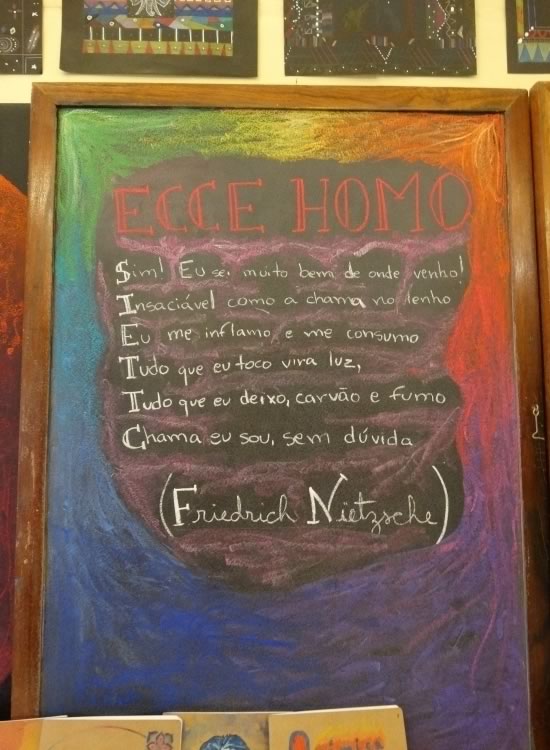 ECCE HOMO
Sim! Eu sei muito bem de onde venho!
Insaciável como a chama no lenho
Eu me inflamo e me consumo
Tudo que eu toco vira luz,
Tudo que eu deixo, carvão e fumo
Chama eu sou, sem dúvida
(Friedrich Nietzsche)